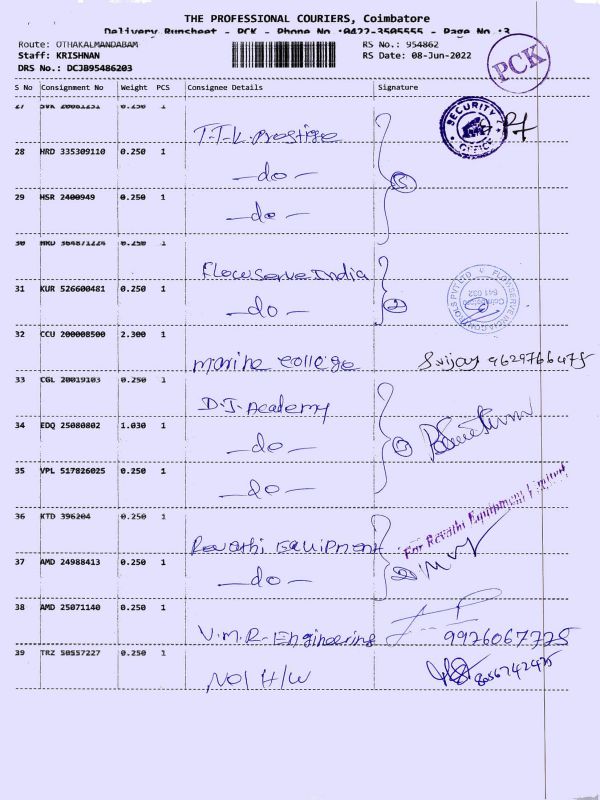 THE PROFESSIONAL COURIERS, Coimbatore
Delivery Runsheet - PCK - Phone No :0422-3505555 - Page No :3
Route: OTHAKALMANDABAM RS No.: 954862
Staff: KRISHNAN RS Date: 08-Jun-2022
DRS No.: DCJB95486203
PCK
S No Consignment No Weight PCS Consignee Details Signature
27 SVK 20081251 0.250 1
T.T.K. Prestige
SECURITY OFFICE
28 HRD 335309110 0.250 1
-do-
29 HSR 2400949 0.250 1
-do-
30 HRD 364871224 0.250 1
Flowserve India
31 KUR 526600481 0.250 1
-do- 2
FLOWSERVE INDIA CONTROLS PVT LTD
Coimbatore
641 032
32 CCU 200008500 2.300 1
Marine College Svijay 9629766475
33 CGL 20019103 0.250 1
D.J. Academy
34 EDQ 25080802 1.030 1
-do-
35 VPL 517826025 0.250 1
-do-
36 KTD 396204 0.250 1
Revathi Equipment For Revathi Equipment Limited
37 AMD 24988413 0.250 1
-do- 2
38 AMD 25071140 0.250 1
V.M.R- Engineering 9926067725
39 TRZ 50557227 0.250 1
NOI H/W 8056742475